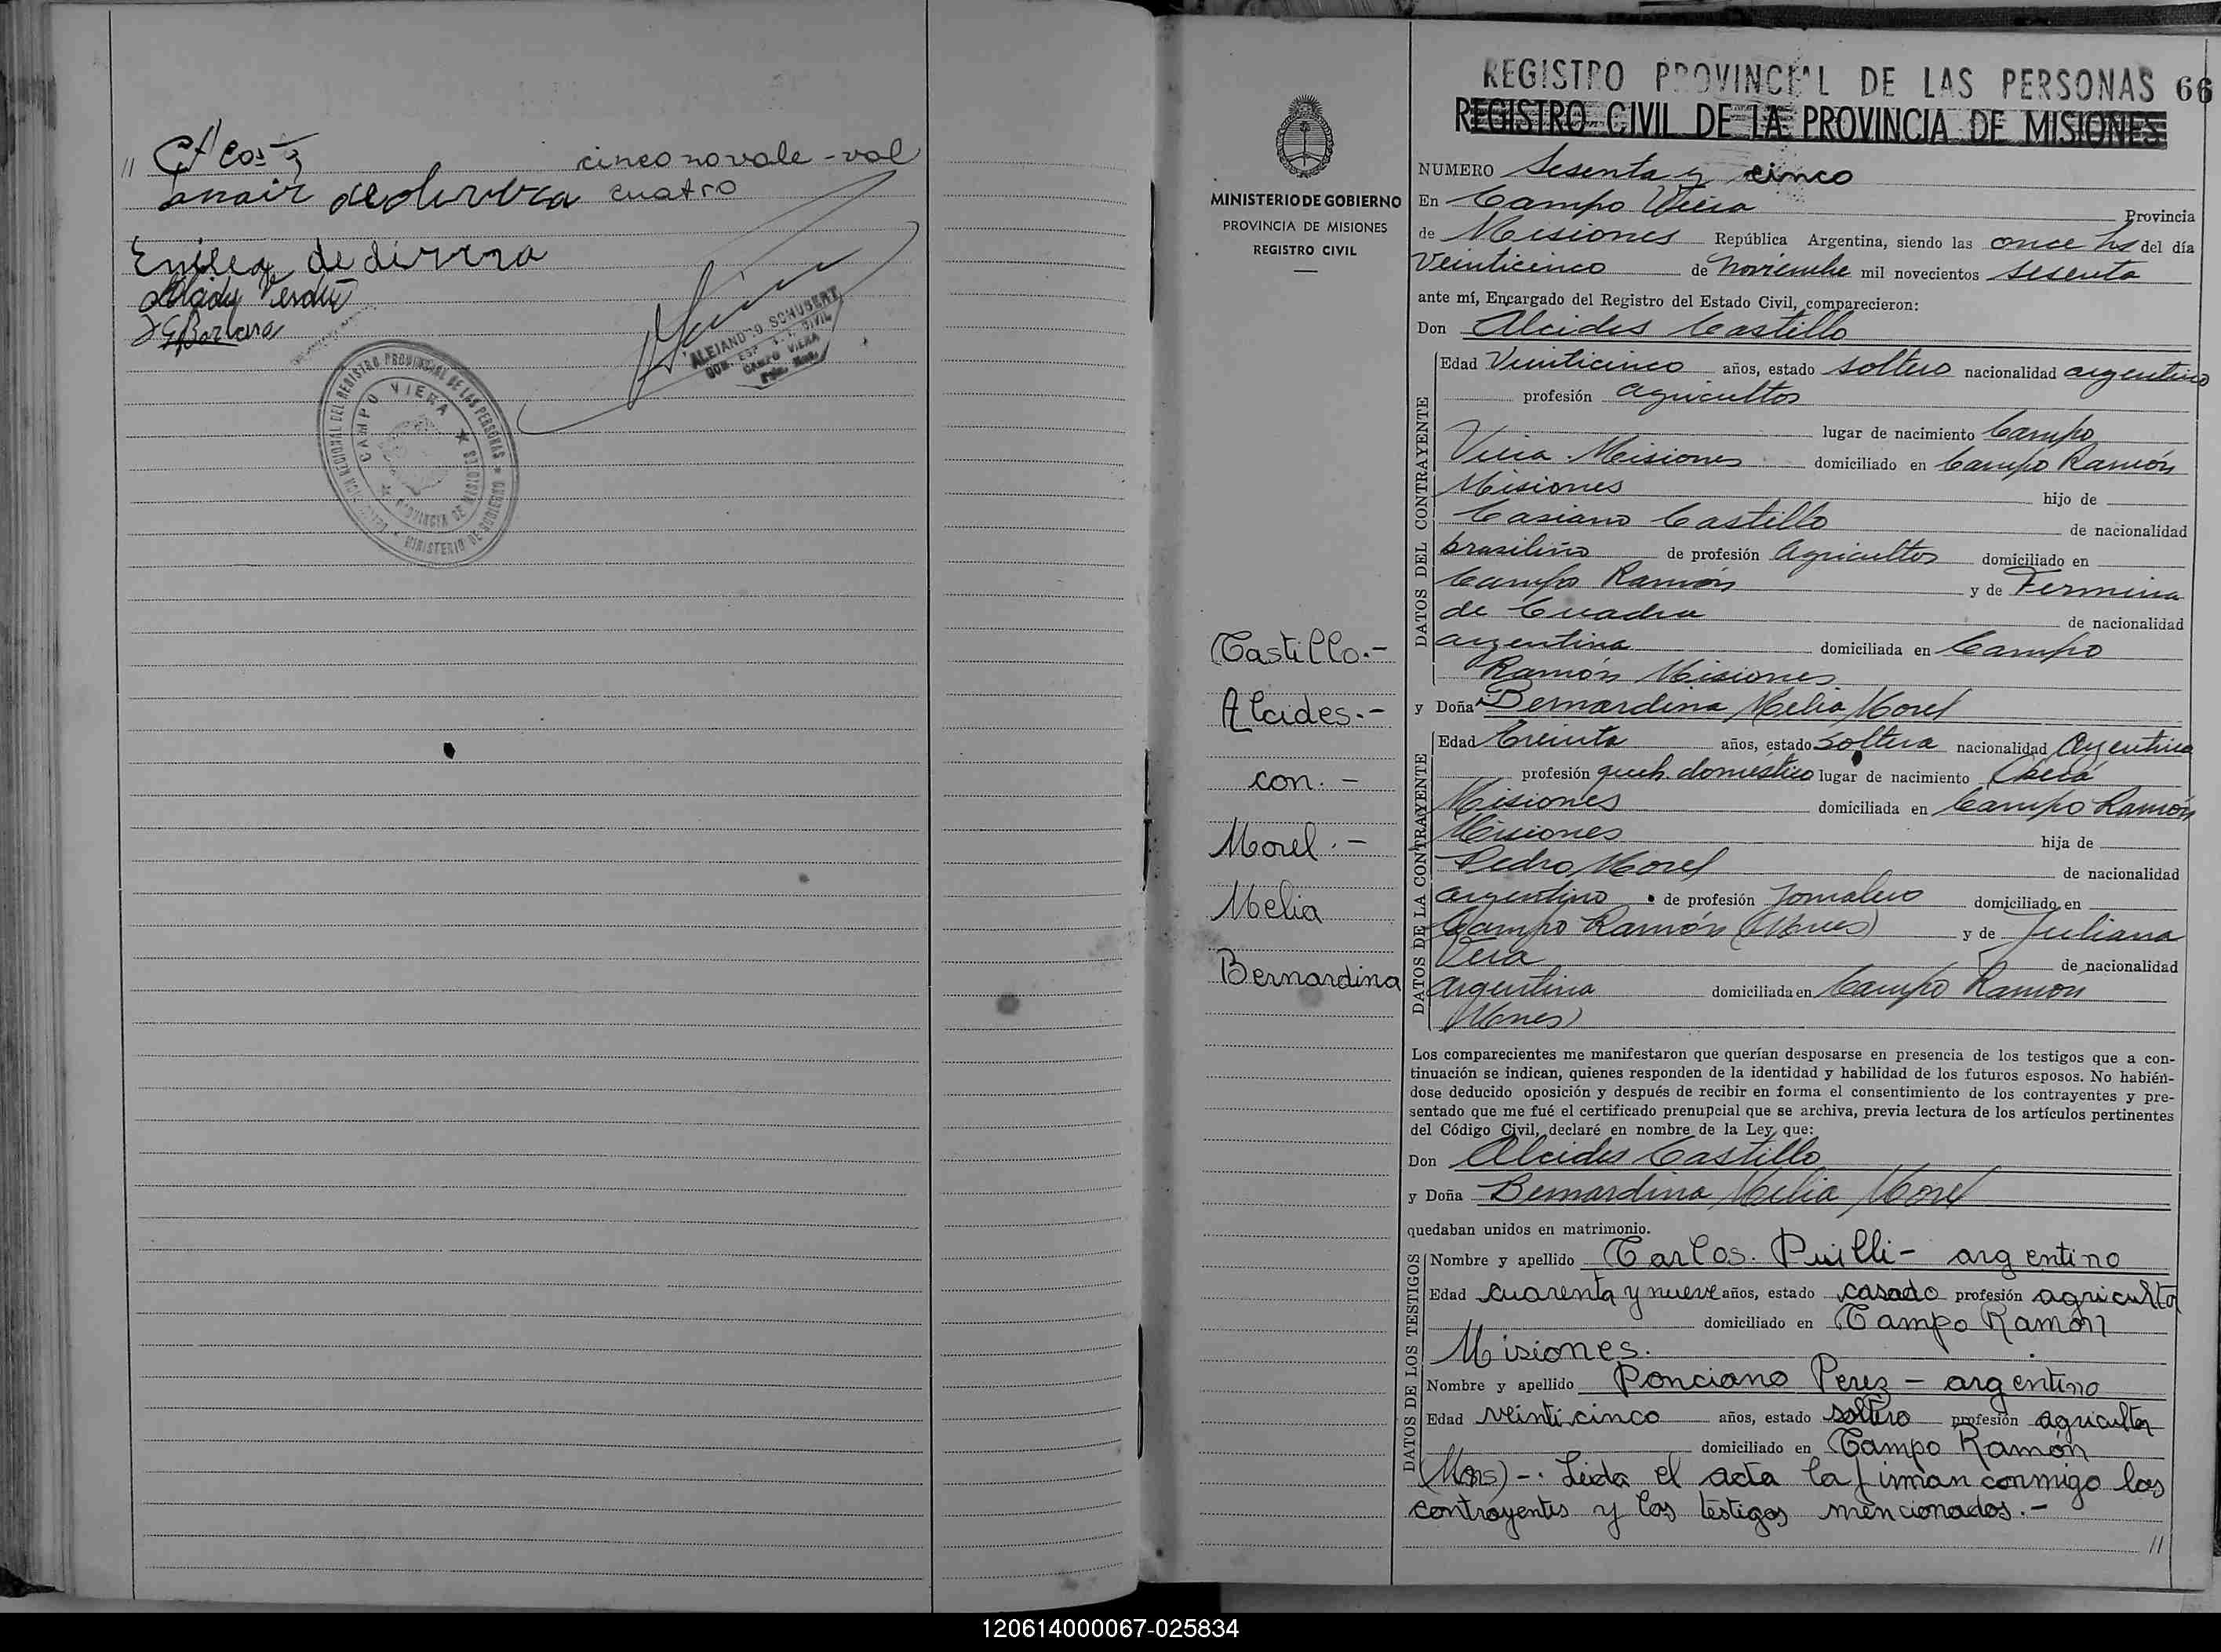 cinco no vale - vale
cuatro
Enilea de
ALEJANDRO SCHUBERT
CAMPO VIERA
REGISTRO PROVINCIAL DE LAS PERSONAS
CAMPO VIERA
PROVINCIA DE MISIONES
MINISTERIO DE GOBIERNO
REGISTRO PROVINCIAL DE LAS PERSONAS 66
REGISTRO CIVIL DE LA PROVINCIA DE MISIONES
MINISTERIO DE GOBIERNO
PROVINCIA DE MISIONES
REGISTRO CIVIL
Castillo.-
Alcides.-
con.-
Morel.-
Melia
Bernardina
NUMERO Sesenta y cinco
En Campo Viera Provincia
de Misiones República Argentina, siendo las once hs del día
Veinticinco de Noviembre mil novecientos sesenta
ante mí, Encargado del Registro del Estado Civil, comparecieron:
Don Alcides Castillo
DATOS DEL CONTRAYENTE
Edad Veinticinco años, estado soltero nacionalidad argentino
profesión agricultor
lugar de nacimiento Campo
Viera - Misiones domiciliado en Campo Ramón
Misiones hijo de
Casiano Castillo de nacionalidad
brasileño de profesión Agricultor domiciliado en
Campo Ramón y de Fermina
de Cuadra de nacionalidad
argentina domiciliada en Campo
Ramón Misiones
y Doña Bernardina Melia Morel
DATOS DE LA CONTRAYENTE
Edad Treinta años, estado soltera nacionalidad Argentina
profesión queh. doméstico lugar de nacimiento Oberá
Misiones domiciliada en Campo Ramón
Misiones hija de
Pedro Morel de nacionalidad
argentino de profesión Jornalero domiciliado en
Campo Ramón (Mnes) y de Juliana
Vera de nacionalidad
argentina domiciliada en Campo Ramon
Mnes)
Los comparecientes me manifestaron que querían desposarse en presencia de los testigos que a con-
tinuación se indican, quienes responden de la identidad y habilidad de los futuros esposos. No habién-
dose deducido oposición y después de recibir en forma el consentimiento de los contrayentes y pre-
sentado que me fué el certificado prenupcial que se archiva, previa lectura de los artículos pertinentes
del Código Civil, declaré en nombre de la Ley que:
Don Alcides Castillo
y Doña Bernardina Melia Morel
quedaban unidos en matrimonio.
DATOS DE LOS TESTIGOS
Nombre y apellido Carlos. Puilli - argentino
Edad cuarenta y nueve años, estado casado profesión agricultor
domiciliado en Campo Ramón
Misiones.
Nombre y apellido Ponciano Perez - argentino
Edad veinticinco años, estado soltero profesión agricultor
domiciliado en Campo Ramón
(Mns) -. Leida el acta la firman conmigo los
contrayentes y los testigos mencionados.-
//
120614000067-025834